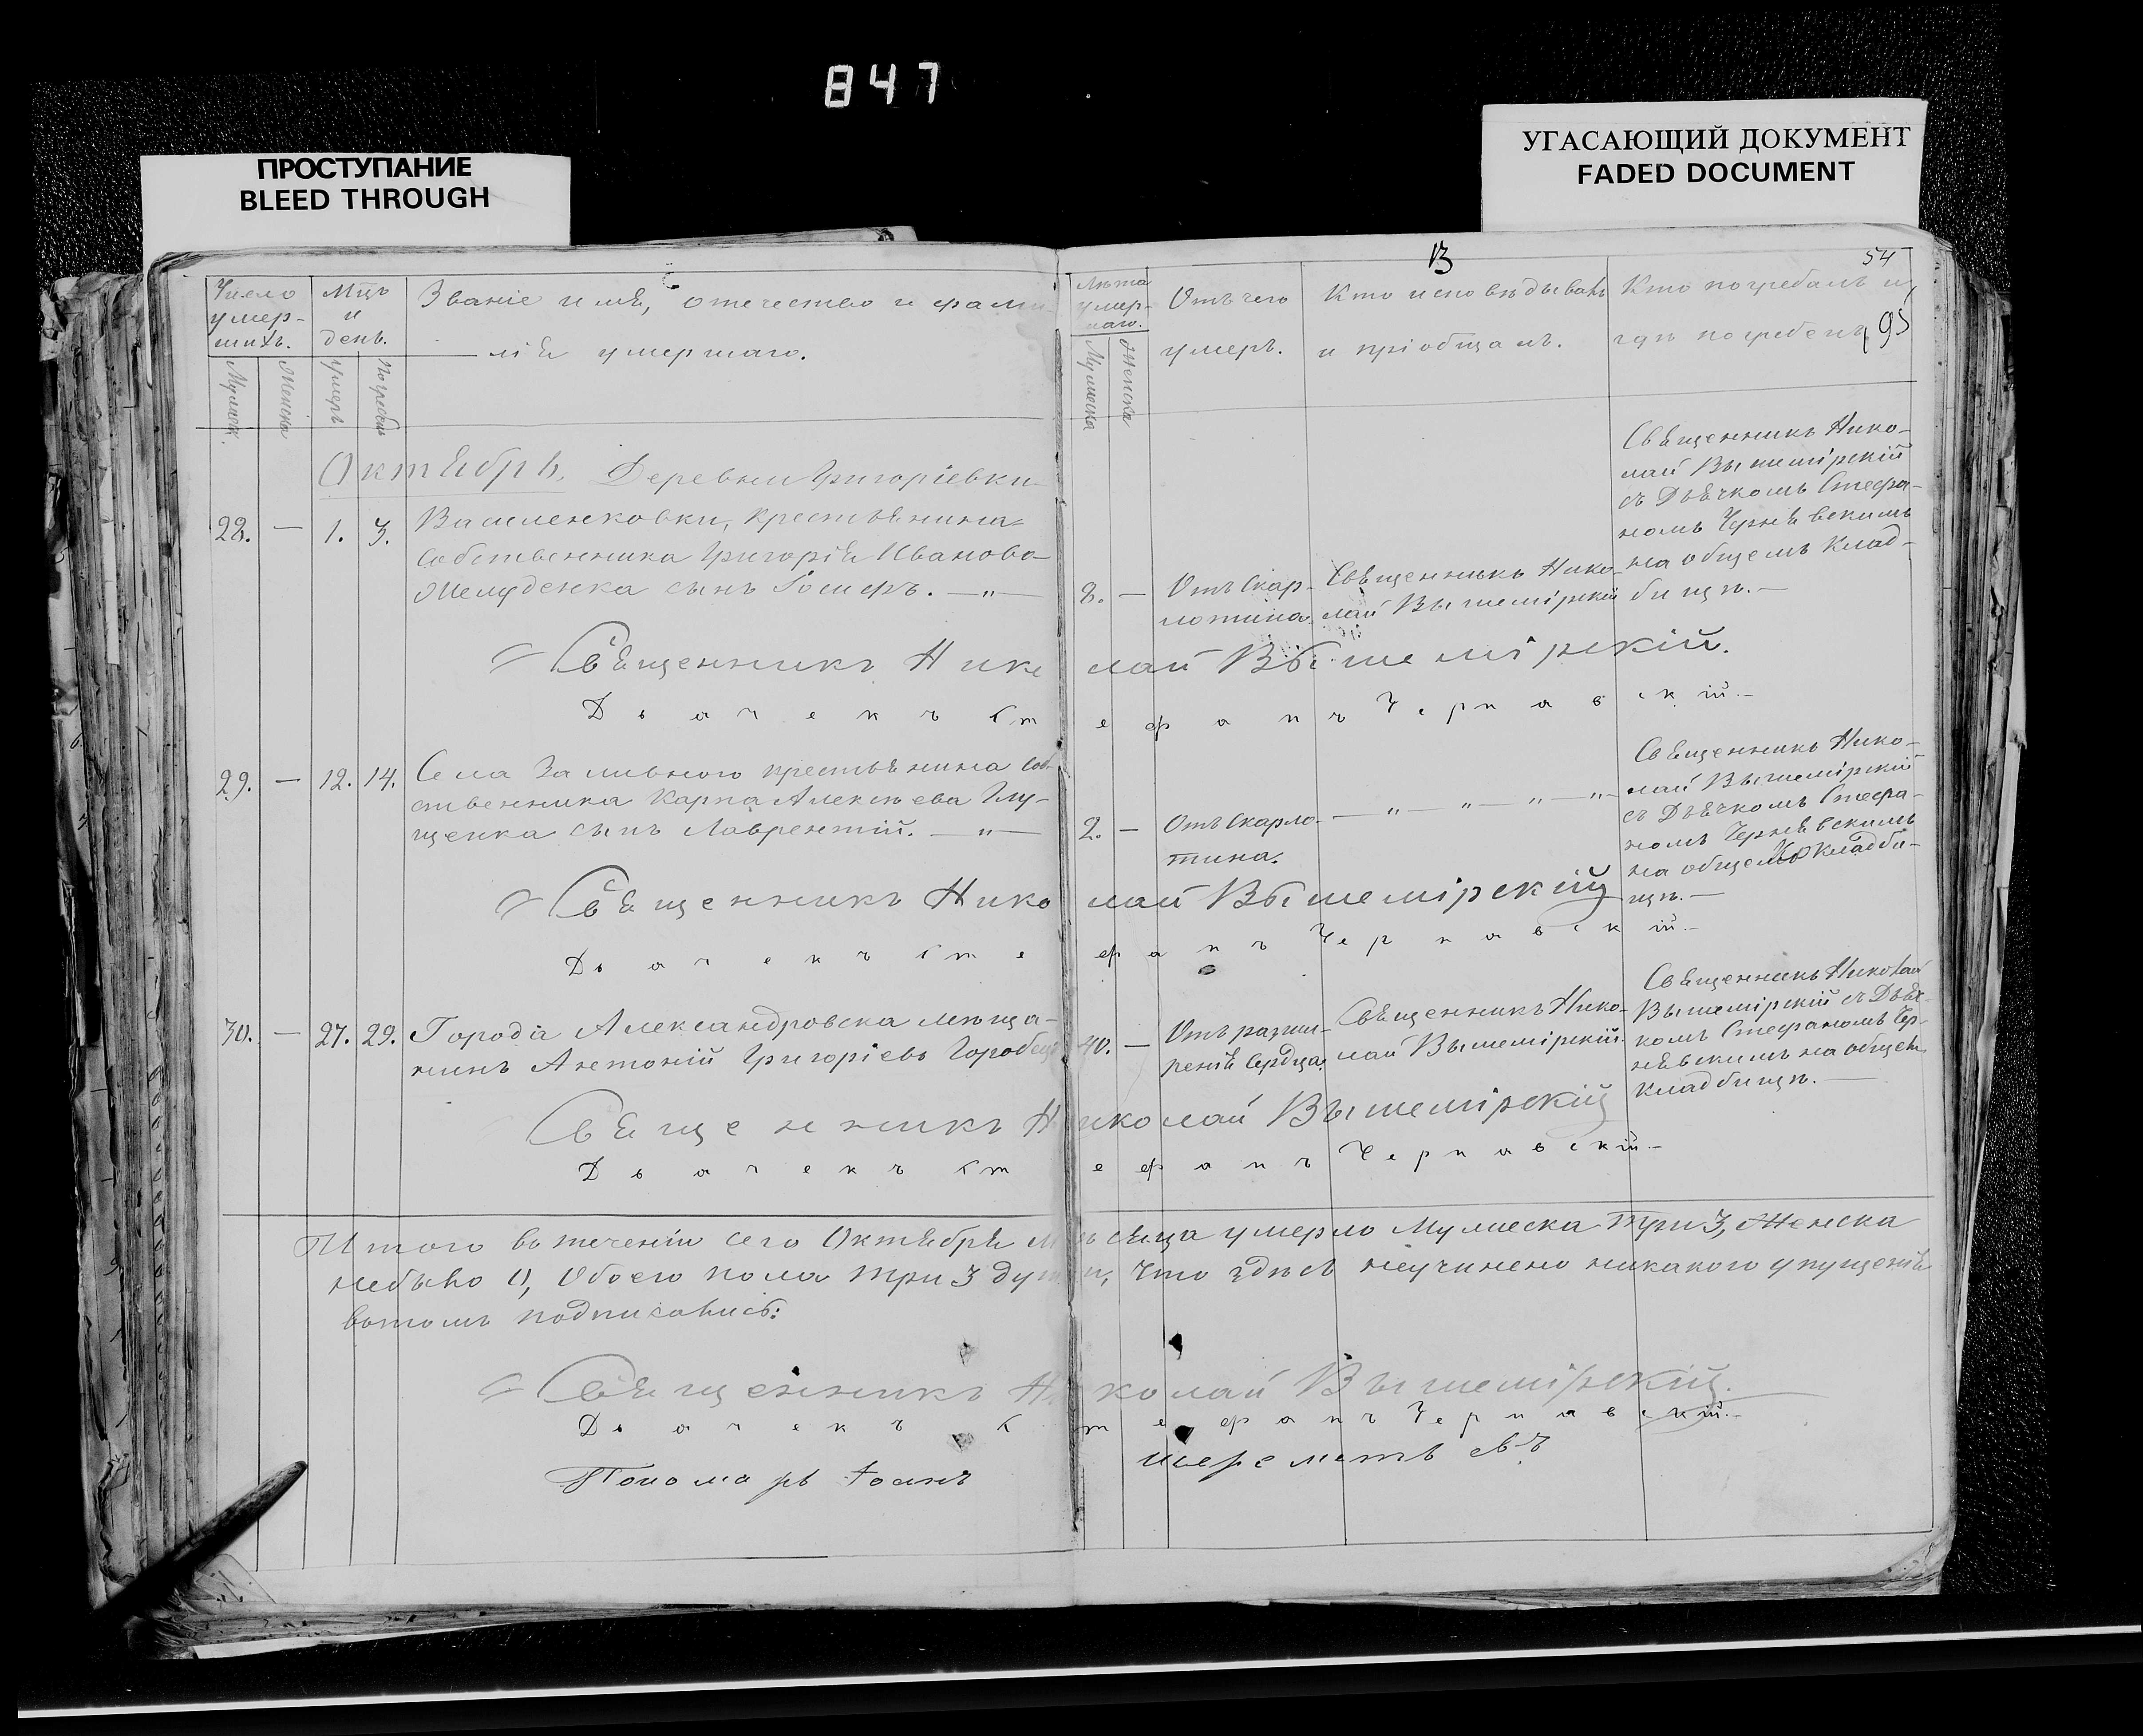 847
ПРОСТУПАНИЕ
BLEED THROUGH
УГАСАЮЩИЙ ДОКУМЕНТ
FADED DOCUMENT
54
95
Число умер-шихъ.
Мужеск.
Женска
Мцъ и день.
умеръ
погребенъ
Званіе имя, отечество и фами-
лія умершаго.
Лѣта умер-шаго.
Мужеска
Женска
Отъ чего
умеръ.
Кто исповѣдывалъ
и пріобщалъ.
Кто погребалъ и
гдѣ погребенъ
Октябрь. Деревни Григоріевки
28. — 1. 3. Василенковки, крестьянина
собственника Григорія Иванова
сынъ Іосифъ. — „ —
8. — Отъ Скар-
лотина.
Священникъ Нико-
лай Вышемірскій
Священникъ Нико-
лай Вышемірскій
съ Дьячкомъ Стефа-
номъ Чернявскимъ
на общемъ клад-
бищѣ. —
Священникъ Николай Вышемірскій.
Дьячекъ Стефанъ Чернавскій. —
29. — 12. 14. Села Заливного крестьянина соб-
ственника Карпа Алексѣева Глу-
щенка сынъ Лаврентій. — „ —
2. — Отъ Скарло-
тина.
— „ — „ — „ — „ —
Священникъ Нико-
лай Вышемірскій
съ Дьячкомъ Стефа-
номъ Чернявскимъ
на общемъ кладби-
щѣ. —
Священникъ Николай Вышемірскій
Дьячекъ Стефанъ Чернавскій. —
30. — 27. 29. Города Александровска мѣща-
нинъ Антоній Григоріевъ Горобецъ
40. — Отъ расши-
ренія сердца.
Священникъ Нико-
лай Вышемірскій.
Священникъ Николай
Вышемірскій съ Дьяч-
комъ Стефаномъ Чер-
нявскимъ на общем
кладбищѣ. —
Священникъ Николай Вышемірскій
Дьячекъ Стефанъ Чернавскій. —
Итого въ теченіи сего Октября мѣсяца умерло Мужеска три 3, Женска
небыло 0, Обоего пола три 3 души, что здѣсь неучинено никакого упущенія
вотомъ подписались:
Священникъ Николай Вышемірскій.
Дьячекъ Стефанъ Чернавскій. —
Пономарь Іоанъ Шереметьевъ.